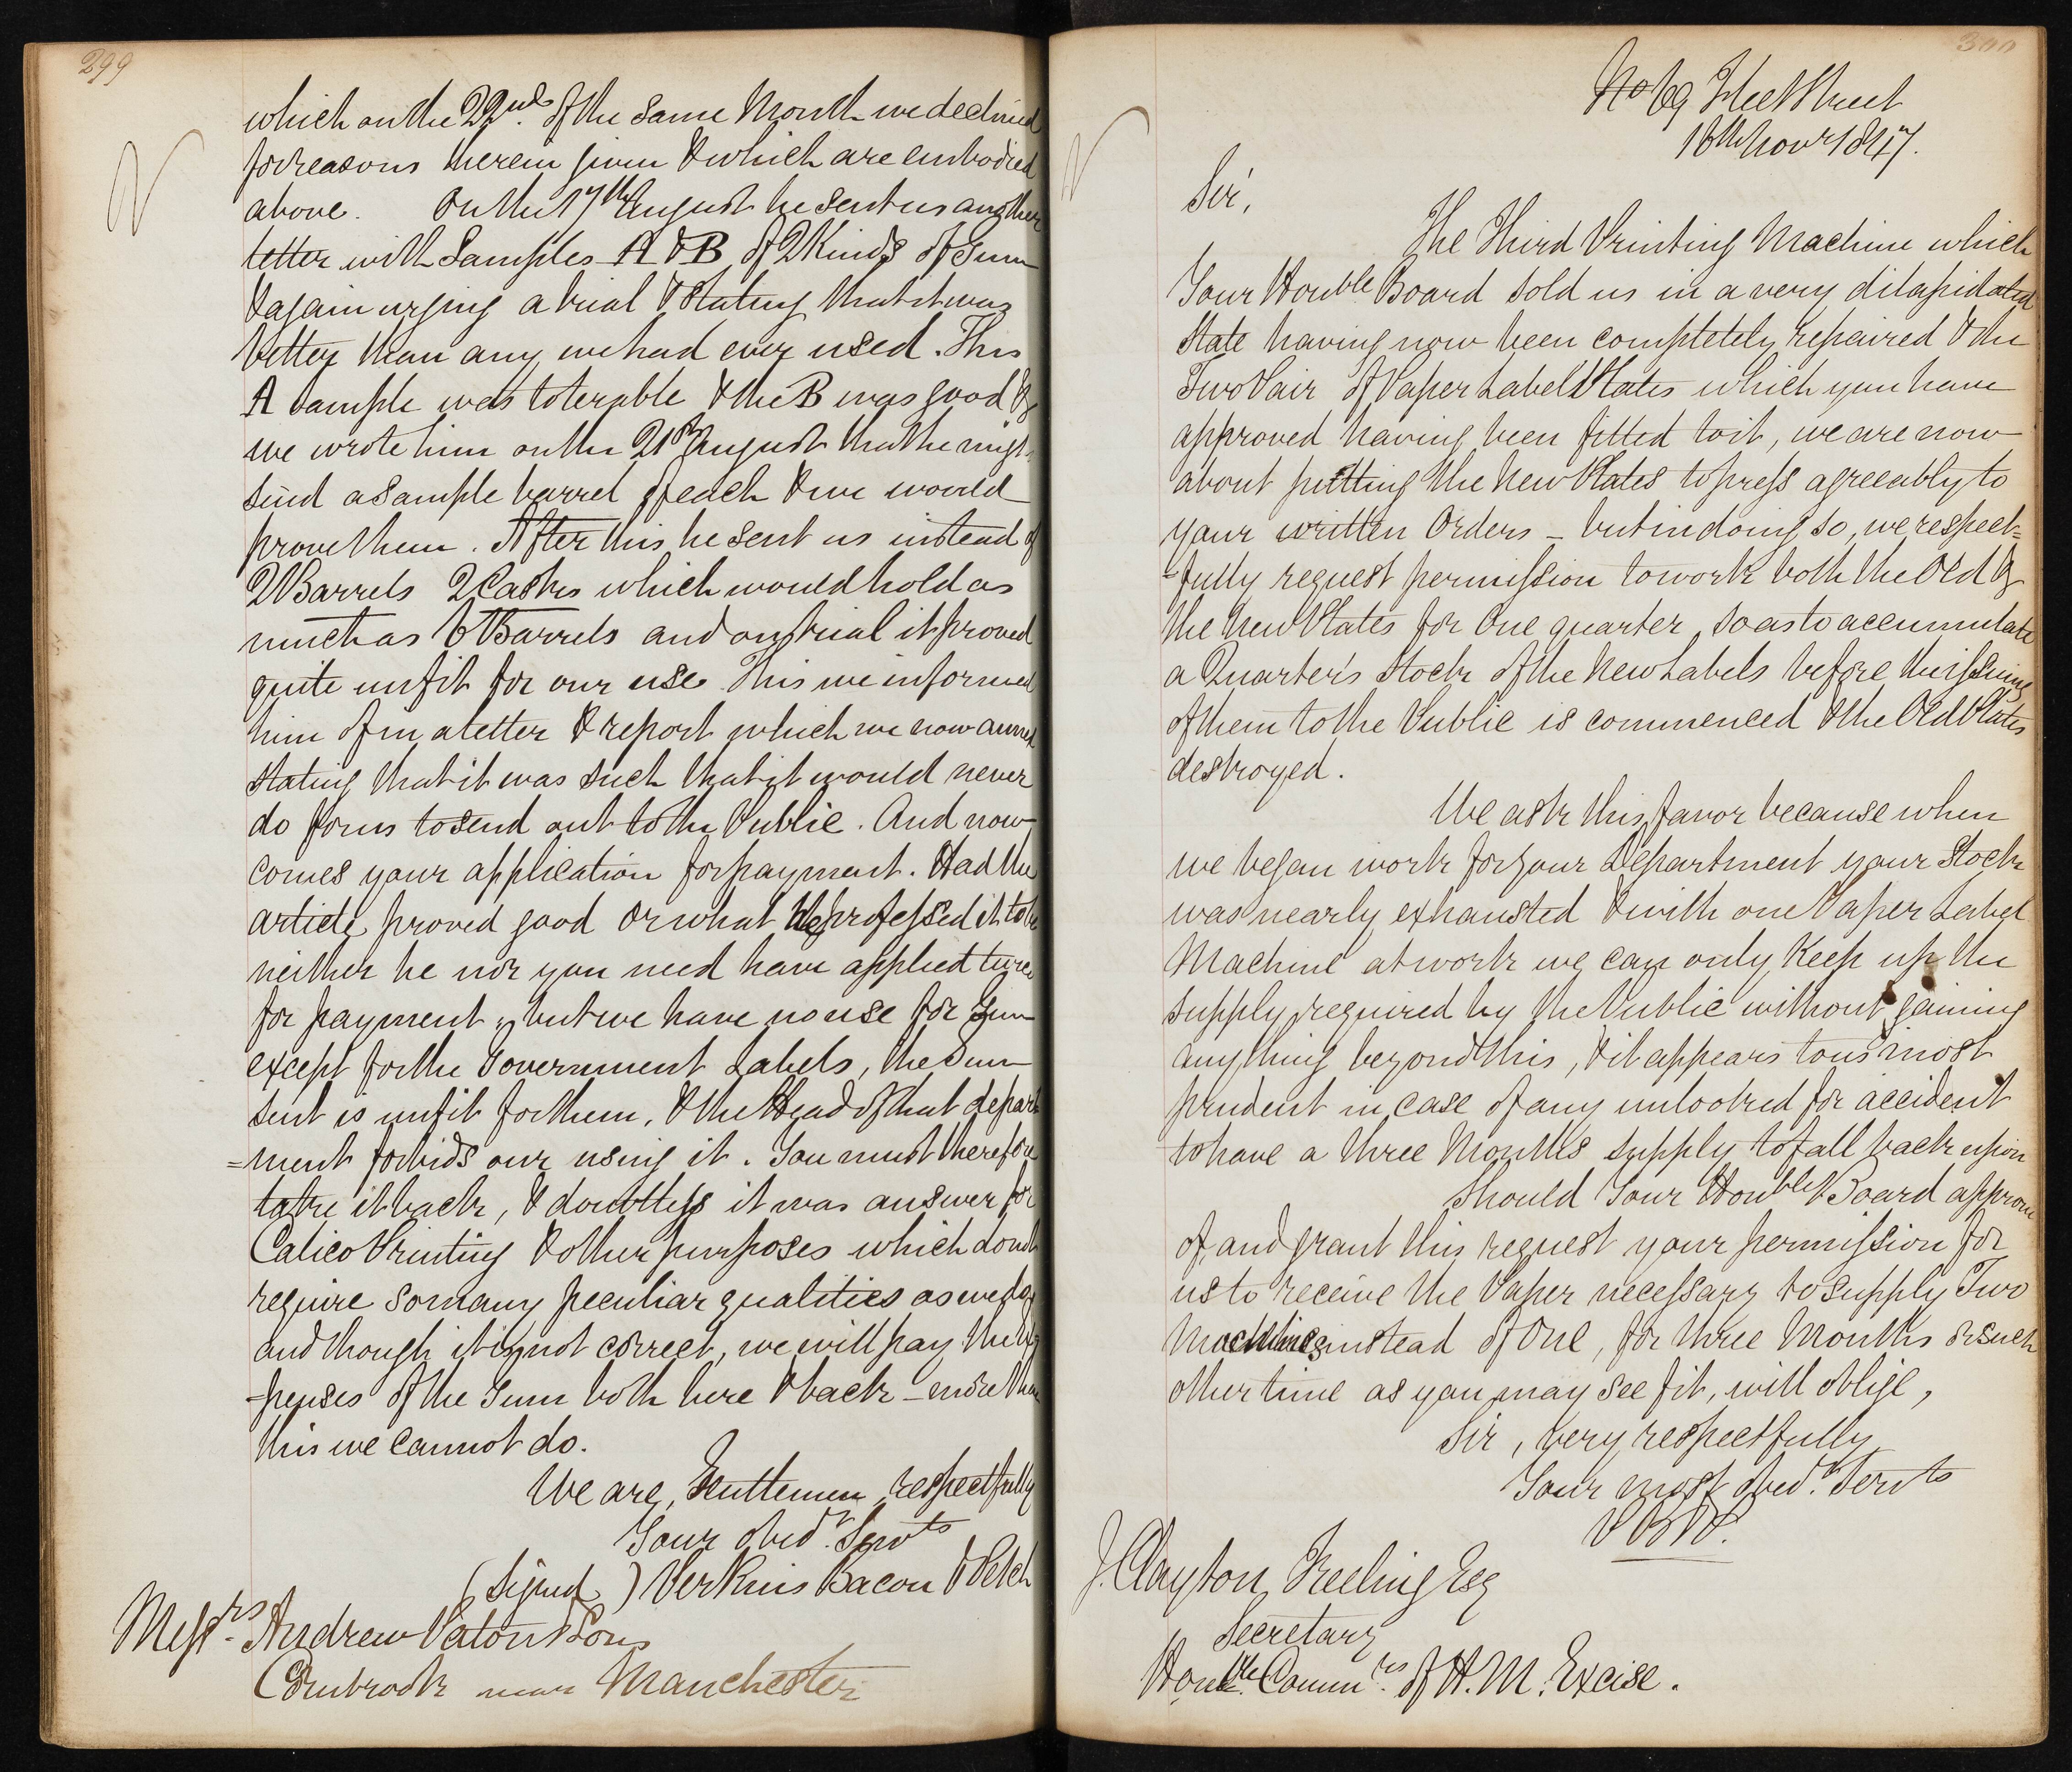 299
which on the 22nd. of the same Month we declined
for reasons therein given & which are embodied
above. On the 17th August he sent us another
letter with Samples A & B of 2 Kinds of Gum
& again urging a trial & Stating that it was
better than any we had ever used. This
A sample was tolerable & the B was good &
we wrote him on the 21st August that he might
send a sample barrel of each & we would
prove them. After this he sent us instead of
2 Barrels 2 Casks which would hold as
much as 6 Barrels and on trial it proved
quite unfit for our use. This we informed
him of in a letter & report which we now annex
stating that it was such that it would never
do for us to send out to the Public. And now
comes your application for payment. Had the
article proved good or what He professed it to be
neither he nor you need have applied twice
for payment, but we have no use for Gum
except for the Government Labels, the Gum
sent is unfit for them, & the Head of that depart
=ment forbids our using it. You must therefore
take it back, & doubtless it was answer for
Calico Printing & other purposes which do not
require so many peculiar qualities as we do,
and though it is not correct, we will pay the ex
=penses of the Gum both here & back - more than
this we cannot do.
We are, Gentlemen, respectfully
Your obedt. Servts
(Signed) Perkins Bacon & Petch
Messrs. Andrew Paton & Sons
Cornbrook near Manchester
300
No 69 Fleet Street
16th Novr 1847.
Sir,
The Third Printing Machine which
Your Honble Board sold us in a very dilapidated
state having now been completely repaired & the
Two Pair of Paper Label Plates which you have
approved having been fitted to it, we are now
about putting the New Plates to press agreeably to
your written Orders - but in doing so, we respect=
=fully request permission to work both the Old &
the New Plates for One quarter, so as to accumulate
a Quarter's Stock of the New Labels before the issuing
of them to the Public is commenced & the Old Plates
destroyed.
We ask this favor because when
we began work for your Department your Stock
was nearly exhausted & with one Paper Label
Machine at work we can only Keep up the
supply required by the Public without gaining
anything beyond this, & it appears to us most
prudent in case of any unlooked for accident
to have a three Months supply to fall back upon
Should Your Honble Board approve
of, and grant this request your permission for
us to receive the Paper necessary to supply Two
Machines instead of One, for three Months or such
other time as you may see fit, will oblige,
Sir, very respectfully
Your most obedt. Servts
P B & P.
J. Clayton Freeling Esq
Secretary
Honble. Commrs. of H.M. Excise.